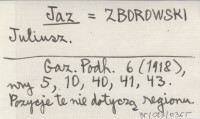 Jaz = ZBOROWSKI
Juliusz.
Gaz. Podh. 6 (1918),
nry 5, 10, 40, 41, 43.
Pozycje te nie dotyczą regionu.